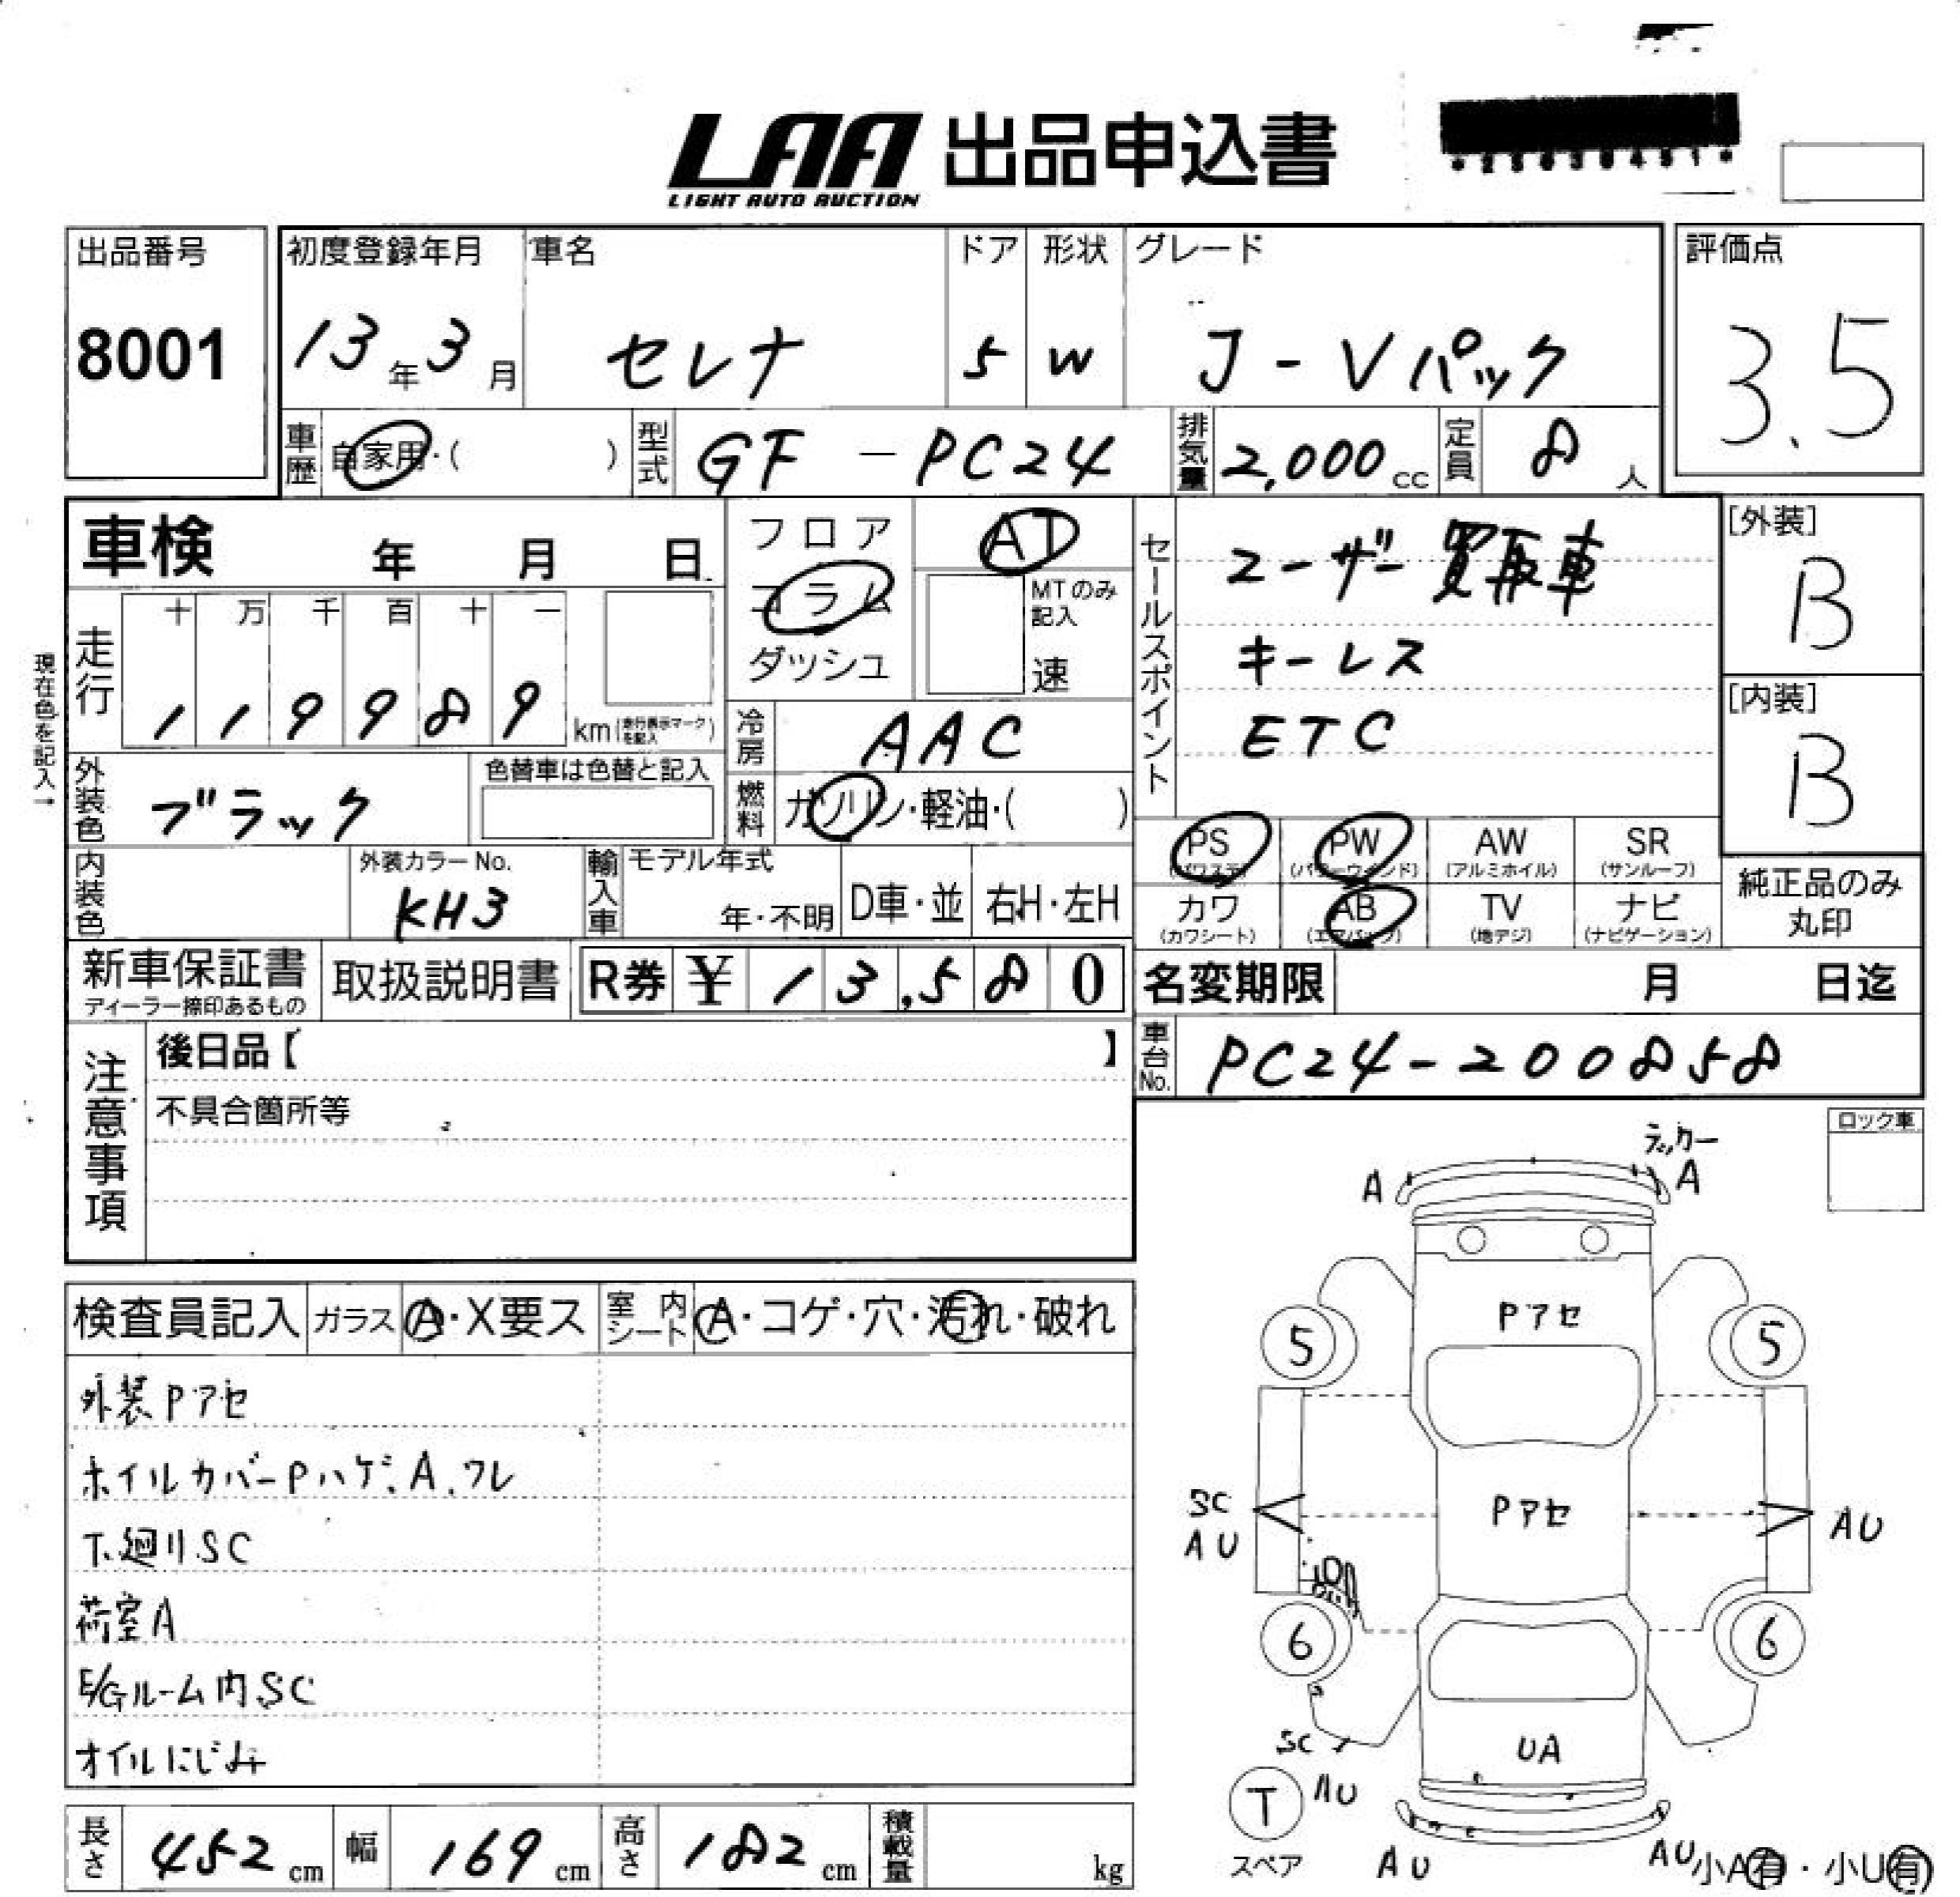 LAA 出品申込書
LIGHT AUTO AUCTION
出品番号
8001
初度登録年月
13年3月
車名
セレナ
ドア
5
形状
W
グレード
J-Vパック
評価点
3.5
車歴
自家用・( )
型式
GF-PC24
排気量
2,000cc
定員
8人
車検 年 月 日
フロア
コラム
ダッシュ
AT
MTのみ記入
速
セールスポイント
ユーザー買取車
キーレス
ETC
[外装]
B
[内装]
B
現在色を記入→
走行
十 万 千 百 十 一
1 1 9 9 8 9 km(走行表示マークを記入)
冷房
AAC
外装色
ブラック
色替車は色替と記入
燃料
ガソリン・軽油・( )
PS (パワステ)
PW (パワーウインド)
AW (アルミホイル)
SR (サンルーフ)
カワ (カワシート)
AB (エアバック)
TV (地デジ)
ナビ (ナビゲーション)
純正品のみ
丸印
内装色
外装カラーNo.
KH3
輸入車
モデル年式
年・不明
D車・並
右H・左H
新車保証書
ディーラー捺印あるもの
取扱説明書
R券 ¥ 13,580
名変期限 月 日迄
注意事項
後日品【 】
不具合箇所等
車台No.
PC24-200858
ロック車
検査員記入
ガラス
A・X要ス
室内シート
A・コゲ・穴・汚れ・破れ
外装Pアセ
ホイルカバーPハゲ.A.ワレ
下廻りSC
荷室A
E/Gルーム内SC
オイルにじみ
A
A
Pアセ
5
5
Pアセ
SC
AU
AU
6
6
SC
AU
UA
T
スペア
AU
AU
小A有・小U有
長さ
452cm
幅
169cm
高さ
182cm
積載量
kg